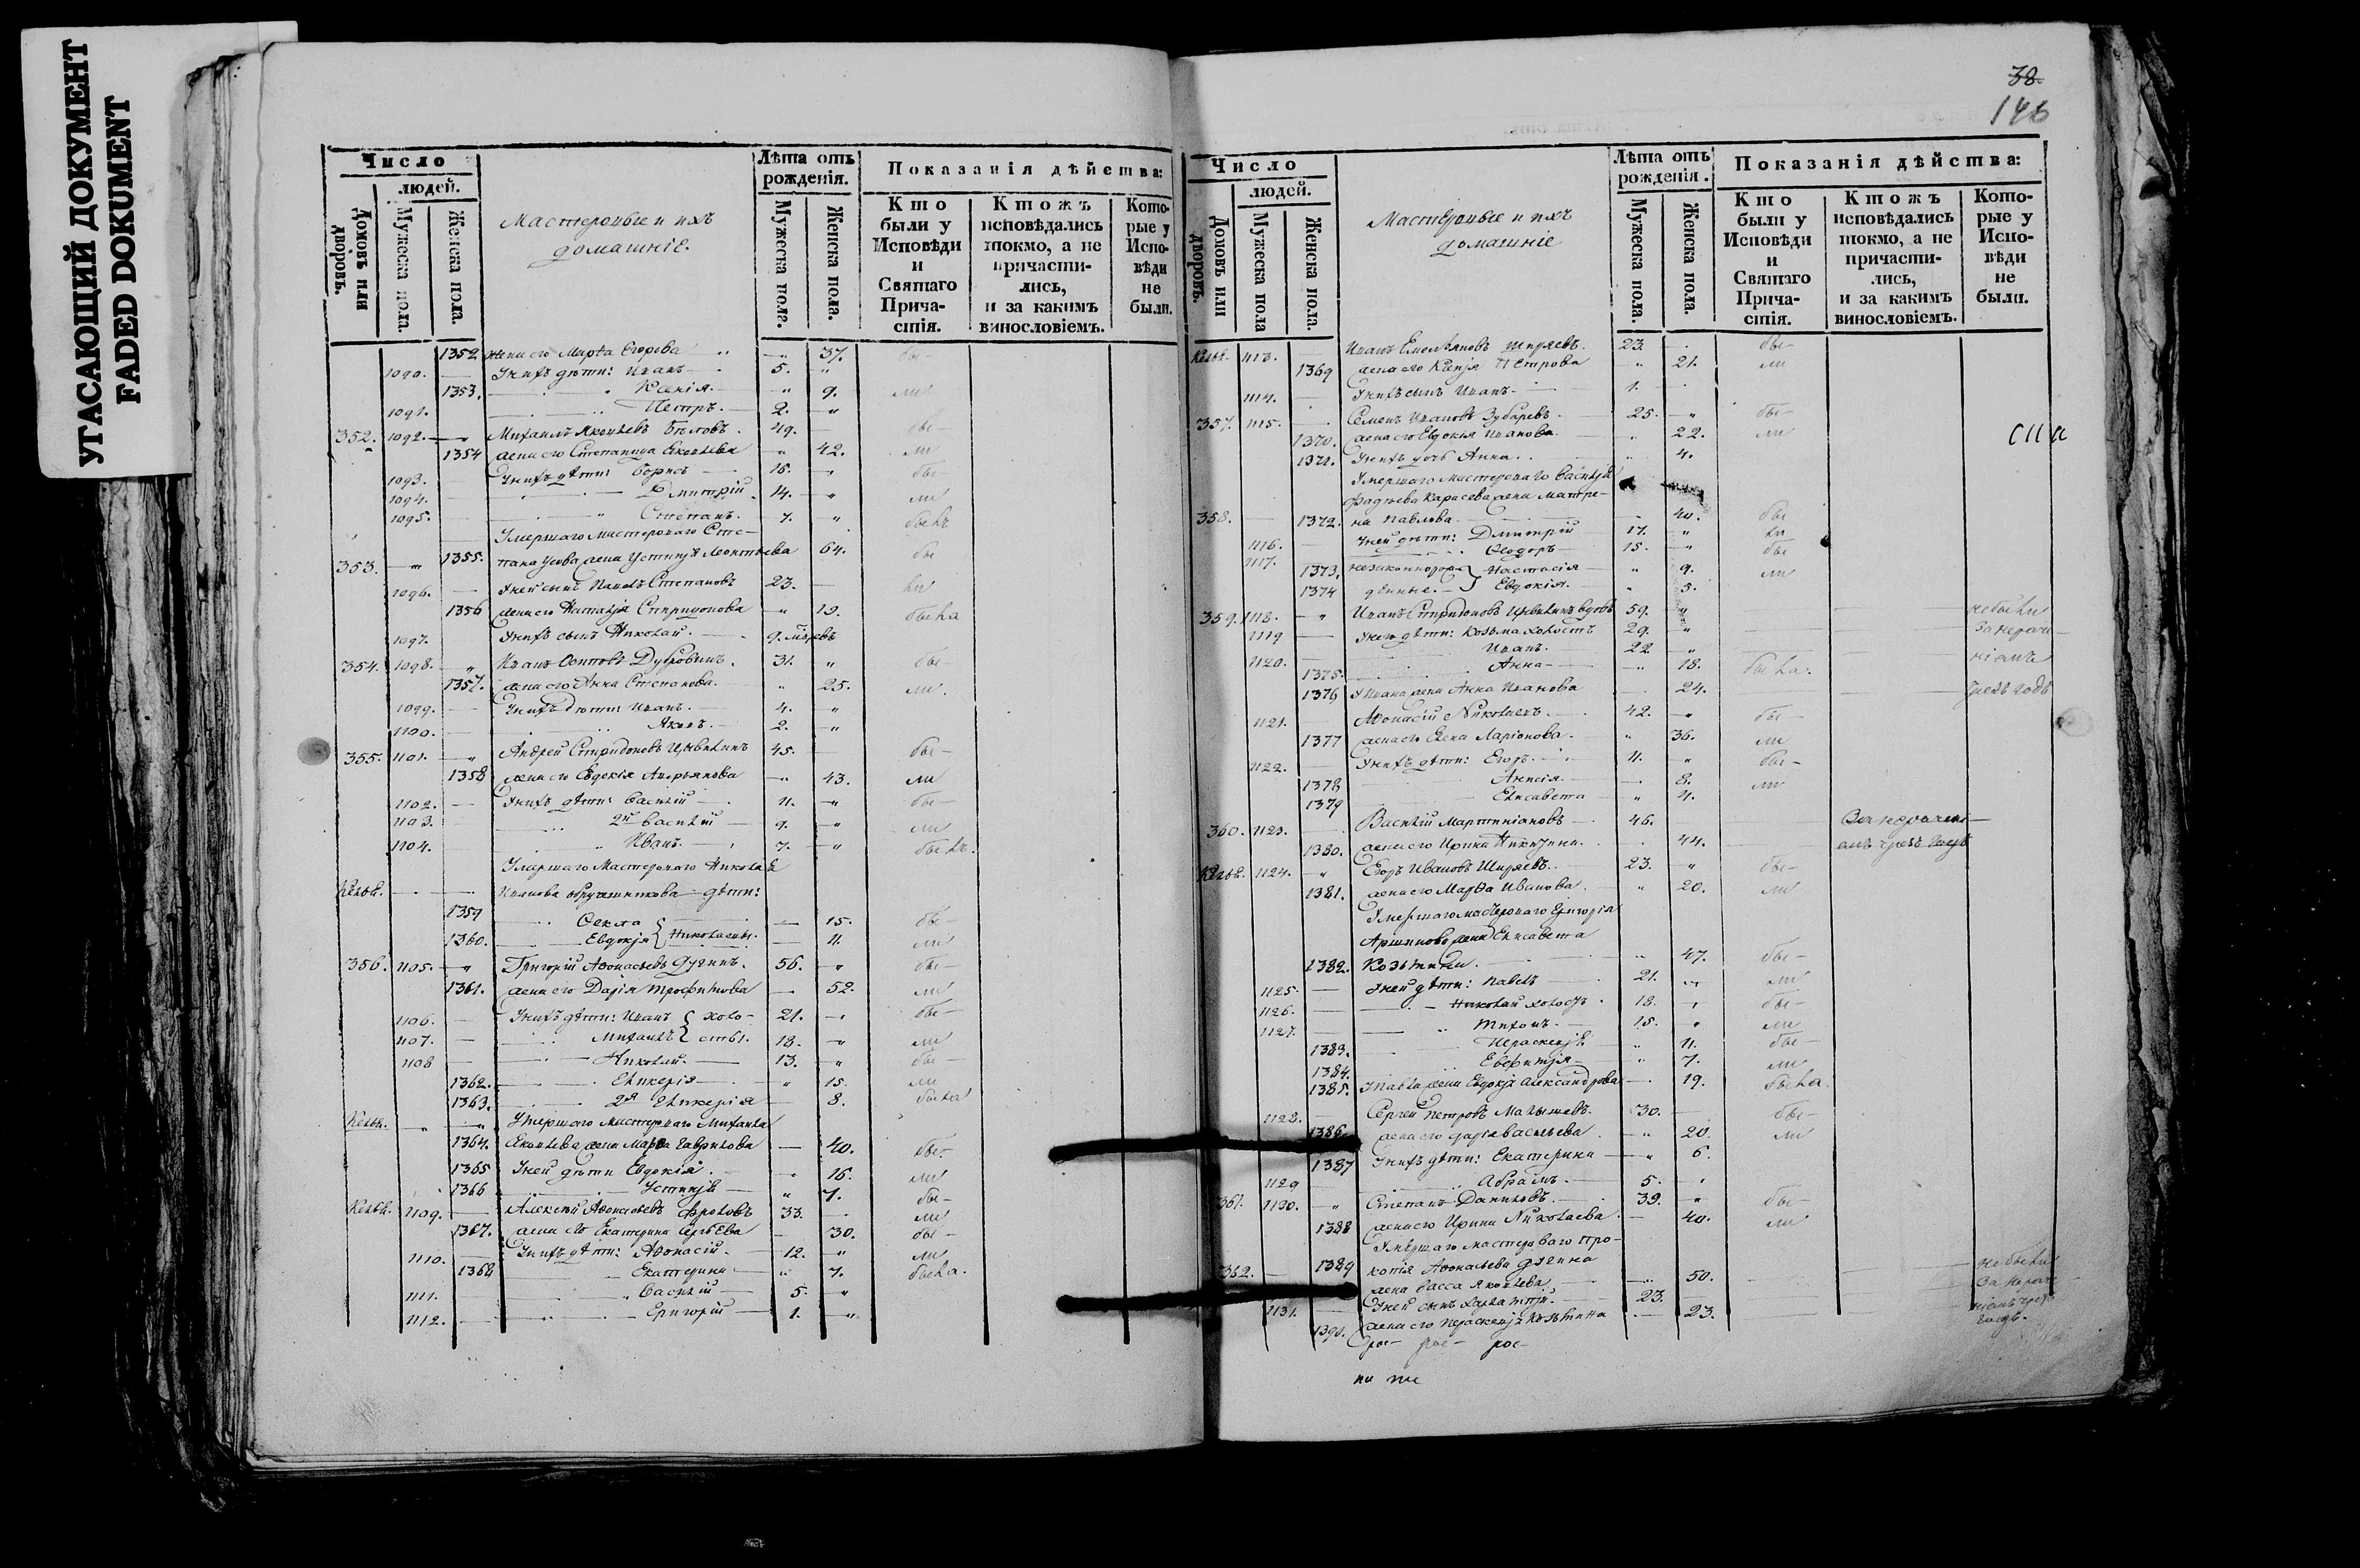 УГАСАЮЩИЙ ДОКУМЕНТ
FADED DOKUMENT
Число
людей.
Домовъ или дворовъ.
Мужеска пола.
Женска пола.
Мастеровые и ихъ
домашніе.
Лѣта отъ рожденія.
Мужеска пола.
Женска пола.
Показанія дѣйства:
Кто были у Исповѣди и Святаго Причастія.
Ктожъ исповѣдались токмо, а не причастились, и за какимъ винословіемъ.
Которые у Исповѣди не были.
1352 жена его Марѳа Егорова 37. бы-
1090. У нихъ дѣти: Иванъ 5.
1353. Ксенія 9. ли
1091. Петръ 2.
352. 1092. Михаилъ Яковлевъ Бѣловъ 49. бы-
1354 жена его Степанида Яковлева 42. ли
1093. У нихъ дѣти: Борисъ 16. бы-
1094. Дмитрій 14. ли
1095. Степанъ 7. былъ
Умершаго мастероваго Сте-
353. 1355. пана Усова жена Устинья Леонтьева 64. бы
1096. У ней сынъ Павелъ Степановъ 23. ли
1356 жена его Наталья Спиридонова 19. была
1097. У нихъ сынъ Николай 9.
354. 1098. Иванъ Осиповъ Дубровинъ 31. бы-
1357. жена его Анна Степанова 25. ли
1099. У нихъ дѣти: Иванъ 4.
1100. Яковъ 2.
355. 1101. Андрей Спиридоновъ Цывилинъ 45. бы-
1358 жена его Евдокія Андреянова 43. ли
1102. У нихъ дѣти: Василій 11. бы-
1103. 2й Василій 9. ли
1104. Иванъ 7. былъ
Умершаго Мастероваго Николая
Иванова дѣти:
1359 Ѳекла 15. бы-
1360. Евдокія Николаевы 11. ли
356. 1105. Григорій Аѳонасьевъ Дугинъ 56. бы-
1361. жена его Дарія Трофимова 52. ли
1106. У нихъ дѣти: Иванъ холо- 21. бы-
1107. Михаилъ сты. 18. ли
1108 Николай 13. бы-
1362. Гликерія 15. ли
1363. 2я Гликерія 8. была
Умершаго Мастероваго Михаила
1364. Яковлева жена Марѳа Гаврилова 40. бы-
1365 У ней дѣти Евдокія 16. ли
1366 Устинья 7. бы-
1109. Алексѣй Аѳонасьевъ Фроловъ 33. ли
1367. жена его Екатерина Сергѣева 30. бы-
1110. У нихъ дѣти: Аѳонасій 12. ли
1368 Екатерина 7. была.
1111. Василій 5.
1112. Григорій 1.
38.
146
Число
людей.
Домовъ или дворовъ.
Мужеска пола
Женска пола.
Мастеровые и ихъ
домашніе
Лѣта отъ рожденія.
Мужеска пола.
Женска пола.
Показанія дѣйства:
Кто были у Исповѣди и Святаго Причастія.
Ктожъ исповѣдались токмо, а не причастились, и за какимъ винословіемъ.
Которые у Исповѣди не были.
1113. Иванъ Емельяновъ Ширяевъ 23. бы-
1369 жена его Ксенія Петрова 21. ли
1114. У нихъ сынъ Иванъ 1.
357. 1115. Семенъ Ивановъ Зубаревъ 25. бы-
1370. жена его Евдокія Иванова 22. ли
1371. У нихъ дочь Анна 4.
Умершаго Мастероваго Василья
Фадѣева Карасева жена Матре-
358. 1372. на Павлова 40. бы
1116. У ней дѣти: Дмитрій 17. ли
1117. Ѳедоръ 15. бы
1373. незаконнорож- Настасія 9. ли
1374 денные. Евдокія 5.
359. 1118. Иванъ Спиридоновъ Цывилинъ вдовъ 59. не были
1119 У него дѣти: Козьма холостъ 29. За нераче-
1120. Иванъ 22. ніемъ
1375. Анна 18. была.
1376 У Ивана жена Анна Иванова 24. чрезъ годъ
1121. Аѳонасій Николаевъ 42. бы-
1377 жена его Елена Ларіонова 36. ли
1122. У нихъ дѣти: Егоръ 11. бы-
1378 Анисія 8. ли
1379 Елисавета 4.
360. 1123. Василій Мартиніановъ 46. За нерачені-
1380. жена его Ирина Никитина 44. емъ чрезъ годъ
1124. Егоръ Ивановъ Ширяевъ 23. бы-
1381. жена его Марѳа Иванова 20. ли
Умершаго мастероваго Григорія
Аршинова жена Елисавета
1382. Козьмина 47. бы-
1125. У ней дѣти: Павелъ 21. ли
1126. Николай холостъ 18. бы-
1127. Тихонъ 15. ли
1383. Параскевія 11. бы-
1384. Евфимія 7. ли
1385. У Павла жена Евдокія Александрова 19. была
1128. Сергей Петровъ Малышевъ 30. бы-
1386 жена его Дарія Васильева 20. ли
1387 У нихъ дѣти: Екатерина 6.
1129 Абрамъ 5.
361. 1130. Степанъ Даниловъ 39. бы-
1388 жена его Ирина Николаева 40. ли
Умершаго мастероваго Про-
362. 1389 копія Аѳонасьева Дугина не были
жена Васса Яковлева 50. За нераче-
1131. У ней сынъ Харлампій 23. ніемъ чрезъ
1390. жена его Параскевія Козьмина 23. годъ.